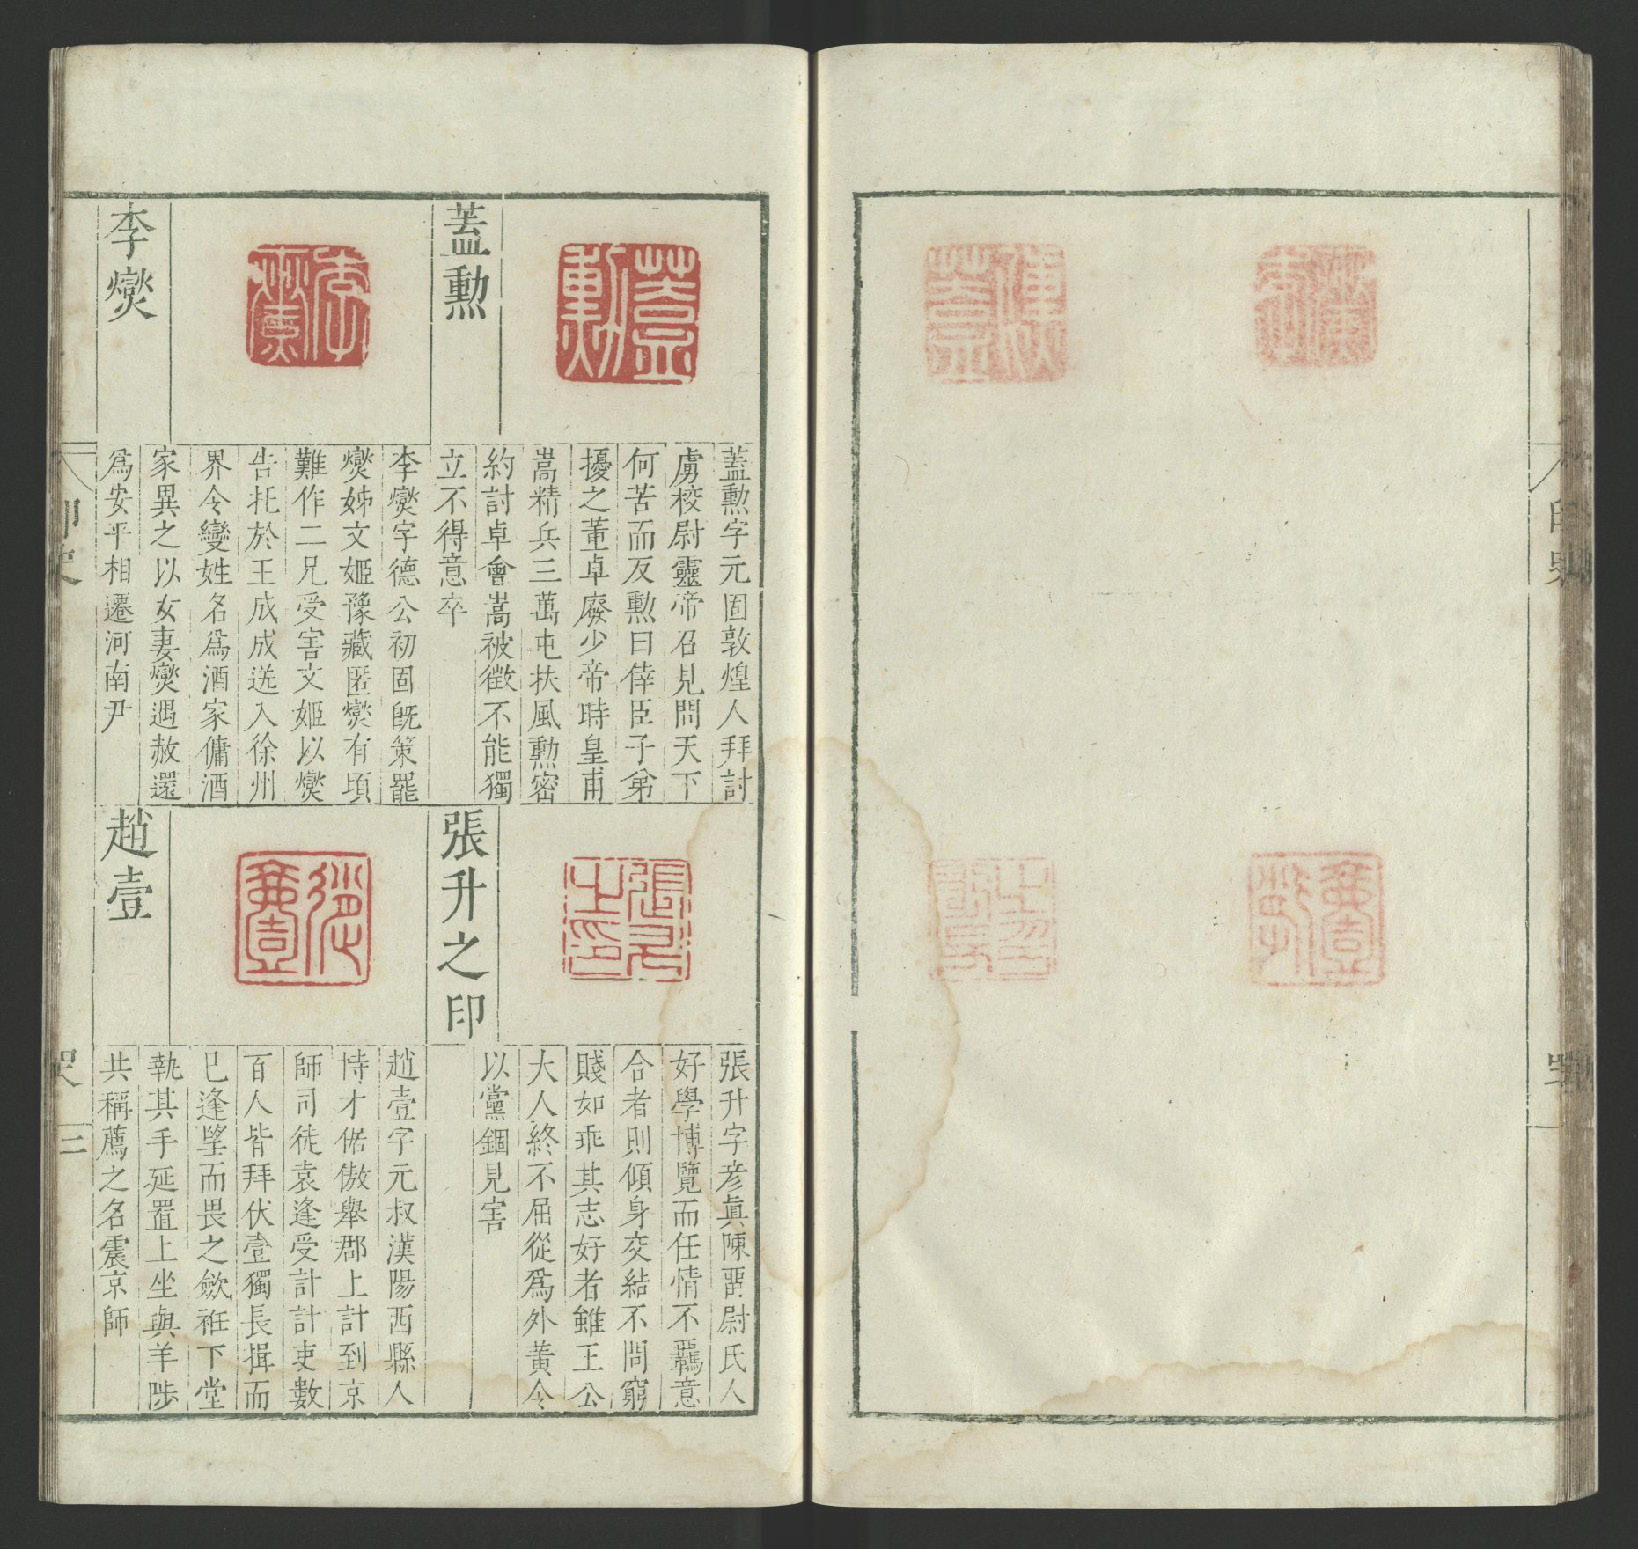 蓋勲
蓋勲字元固敦煌人拜討
虜校尉靈帝召見問天下
何苦而反勲曰倖臣子弟
擾之董卓廢少帝時皇甫
嵩精兵三萬屯扶風勲密
約討卓會嵩被徵不能獨
立不得意卒
李燮
李燮字德公初固旣策罷
燮姊文姬豫藏匿燮有頃
難作二兄受害文姬以燮
告托於王成成送入徐州
界令變姓名爲酒家傭酒
家異之以女妻燮遇赦還
爲安平相遷河南尹
張升之印
張升字彦眞陳畱尉氏人
好學博覽而任情不羈意
合者則傾身交結不問窮
賤如乖其志好者雖王公
大人終不屈從爲外黃令
以黨錮見害
趙壹
趙壹字元叔漢陽西縣人
恃才倨傲舉郡上計到京
師司徒袁逢受計計吏數
百人皆拜伏壹獨長揖而
已逢望而畏之斂袵下堂
執其手延置上坐與羊陟
共稱薦之名震京師
印史
三